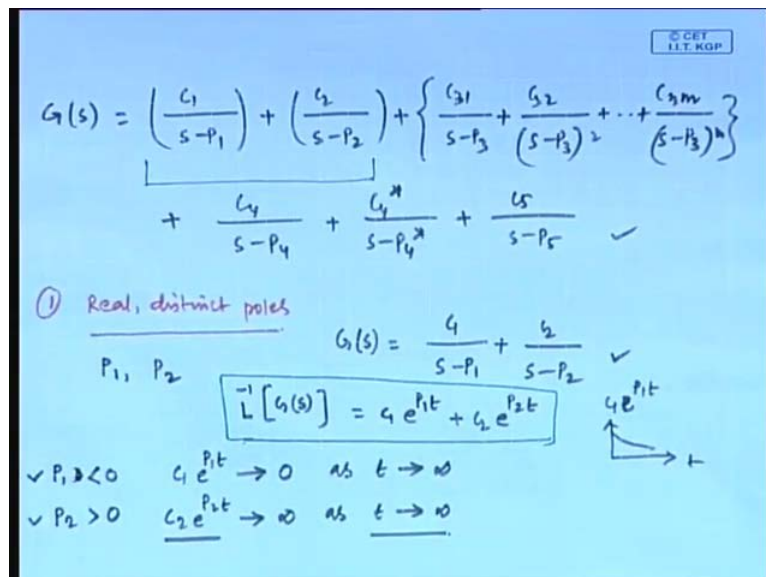 © CET
I.I.T. KGP
G(s) = (C1/(s-P1)) + (C2/(s-P2)) + {C31/(s-P3) + C32/(s-P3)^2 + ··· + C3m/(s-P3)^m}
+ C4/(s-P4) + C4*/(s-P4*) + C5/(s-P5) ✓
① Real, distinct poles
P1, P2
G(s) = C1/(s-P1) + C2/(s-P2) ✓
L^-1 [G(s)] = C1 e^{P1t} + C2 e^{P2t}
C1 e^{P1t}
t
✓ P1 < 0 C1 e^{P1t} → 0 as t → ∞
✓ P2 > 0 C2 e^{P2t} → ∞ as t → ∞